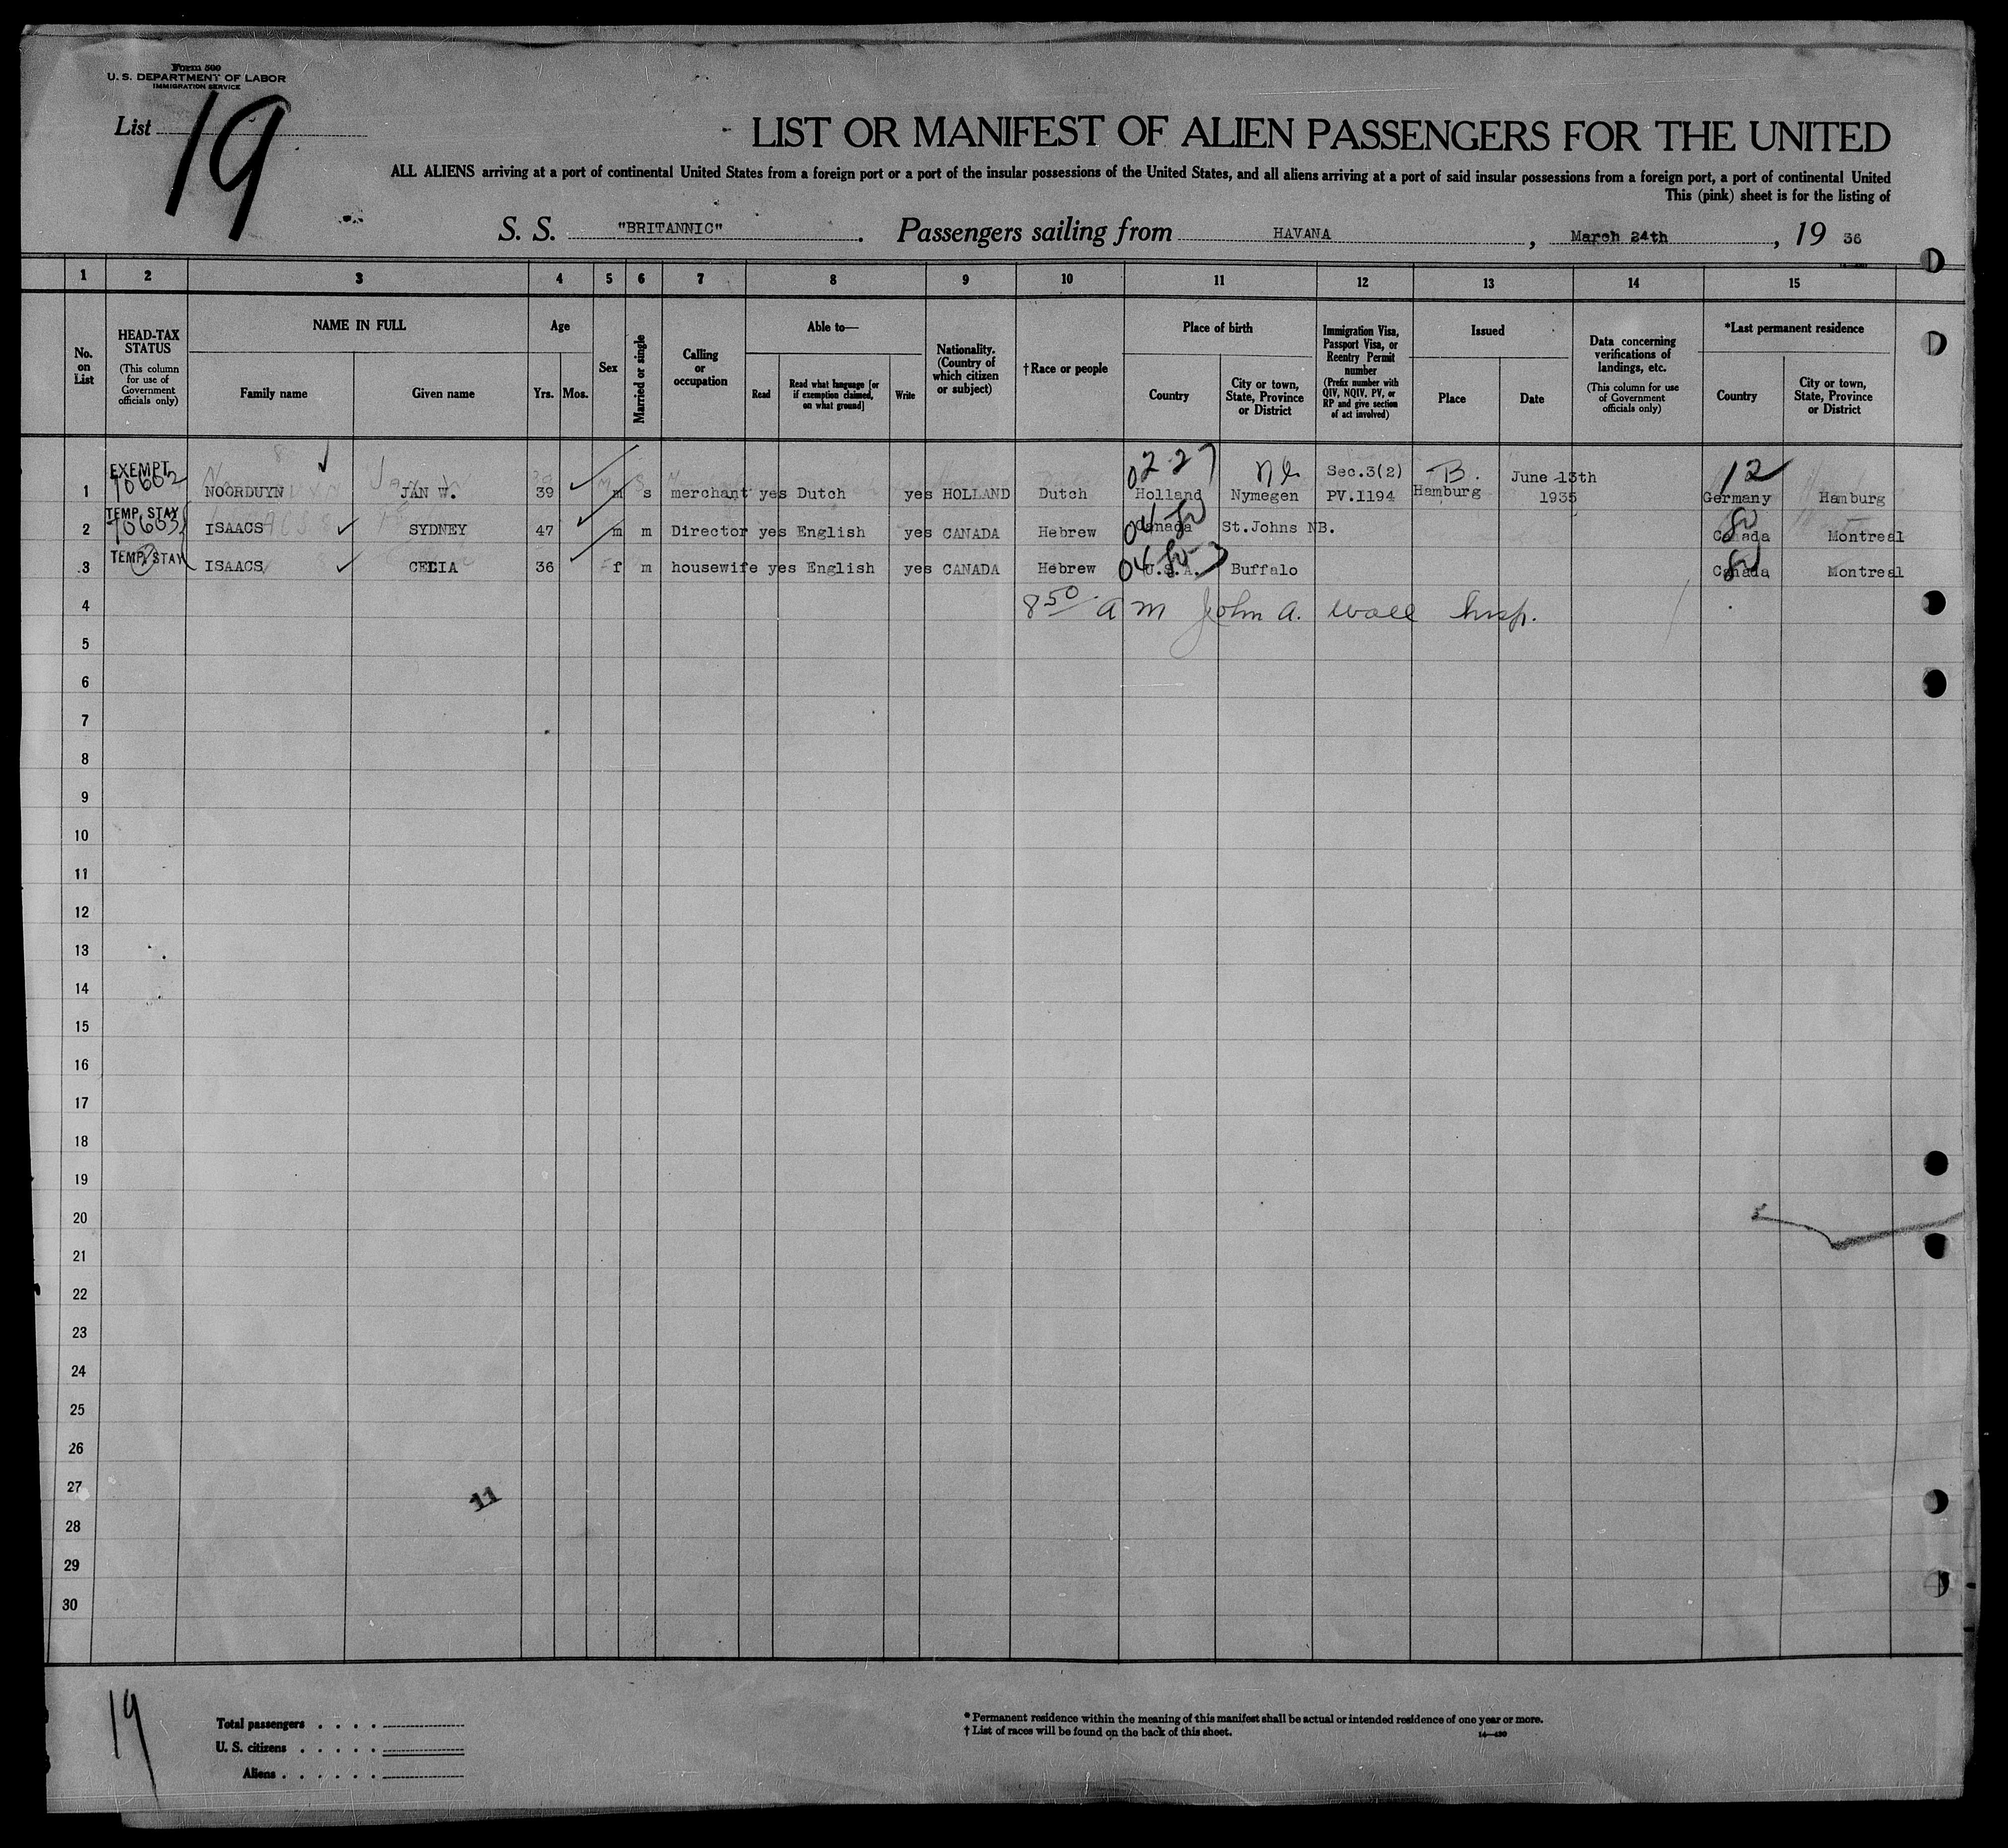 Form 500
U. S. DEPARTMENT OF LABOR
IMMIGRATION SERVICE
List 19
LIST OR MANIFEST OF ALIEN PASSENGERS FOR THE UNITED
ALL ALIENS arriving at a port of continental United States from a foreign port or a port of the insular possessions of the United States, and all aliens arriving at a port of said insular possessions from a foreign port, a port of continental United
This (pink) sheet is for the listing of
S. S. "BRITANNIC". Passengers sailing from HAVANA, March 24th, 19 36
1 2 3 4 5 6 7 8 9 10 11 12 13 14 15
No. on List
HEAD-TAX STATUS (This column for use of Government officials only)
NAME IN FULL
Family name
Given name
Age
Yrs.
Mos.
Sex
Married or single
Calling or occupation
Able to—
Read
Read what language [or if exemption claimed, on what ground]
Write
Nationality. (Country of which citizen or subject)
†Race or people
Place of birth
Country
City or town, State, Province or District
Immigration Visa, Passport Visa, or Reentry Permit number (Prefix number with QIV, NQIV, PV, or RP and give section of act involved)
Issued
Place
Date
Data concerning verifications of landings, etc. (This column for use of Government officials only)
*Last permanent residence
Country
City or town, State, Province or District
EXEMPT 02 27 Ne Sec.3(2) B. June 13th 12
1 70662 NOORDUYN JAN W. 39 m s merchant yes Dutch yes HOLLAND Dutch Holland Nymegen PV.I194 Hamburg 1935 Germany Hamburg
TEMP. STAY
2 70663 ISAACS SYDNEY 47 m m Director yes English yes CANADA Hebrew Canada St.Johns NB. Canada Montreal
TEMP. STAY
3 ISAACS CELIA 36 f m housewife yes English yes CANADA Hebrew U.S.A. Buffalo Canada Montreal
4 8 50 a m John A. Wall Insp.
5
6
7
8
9
10
11
12
13
14
15
16
17
18
19
20
21
22
23
24
25
26
27
11
28
29
30
19
Total passengers
U. S. citizens
Aliens
* Permanent residence within the meaning of this manifest shall be actual or intended residence of one year or more.
† List of races will be found on the back of this sheet.
14—430